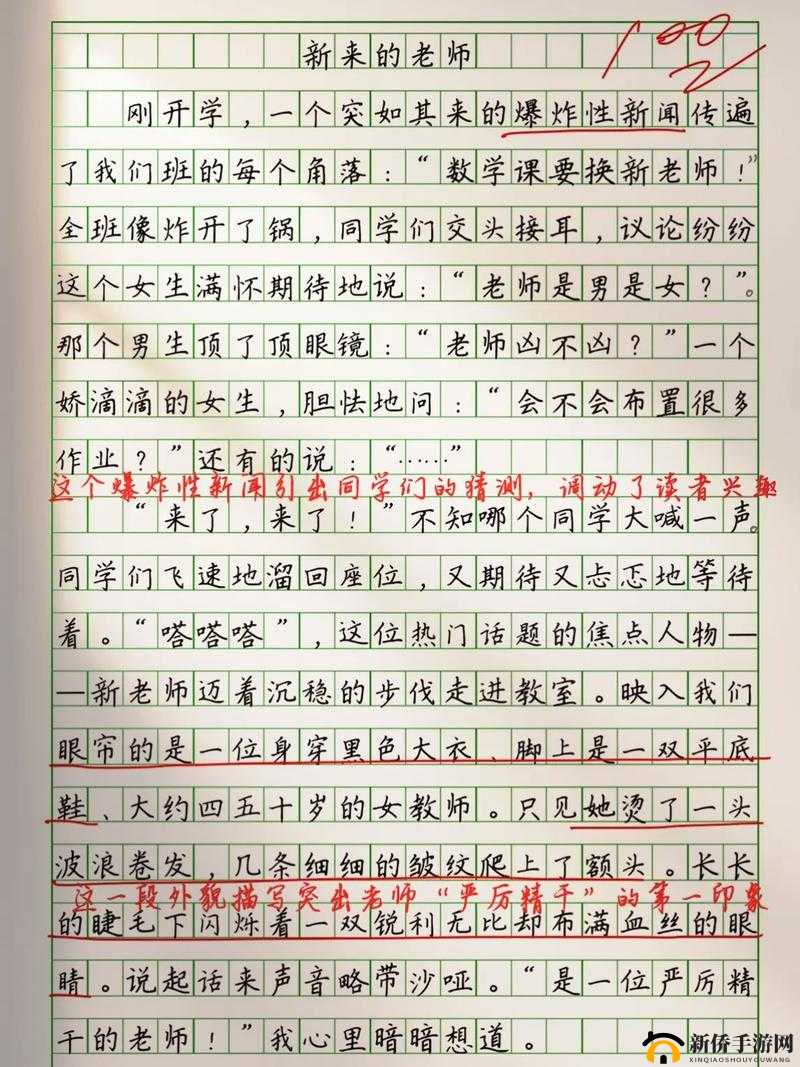 新来的老师
100
刚开学，一个突如其来的爆炸性新闻传遍
了我们班的每个角落：“数学课要换新老师！”
全班像炸开了锅，同学们交头接耳，议论纷纷
这个女生满怀期待地说：“老师是男是女？”。
那个男生顶了顶眼镜：“老师凶不凶？”一个
娇滴滴的女生，胆怯地问：“会不会布置很多
作业？”还有的说：“……”
这个爆炸性新闻引出同学们的猜测，调动了读者兴趣
“来了，来了！”不知哪个同学大喊一声。
同学们飞速地溜回座位，又期待又忐忑地等待
着。“嗒嗒嗒”，这位热门话题的焦点人物—
—新老师迈着沉稳的步伐走进教室。映入我们
眼帘的是一位身穿黑色大衣、脚上是一双平底
鞋、大约四五十岁的女教师。只见她烫了一头
波浪卷发，几条细细的皱纹爬上了额头。长长
这一段外貌描写突出老师“严厉精干”的第一印象
的睫毛下闪烁着一双锐利无比却布满血丝的眼
睛。说起话来声音略带沙哑。“是一位严厉精
干的老师！”我心里暗暗想道。
新侨手游网
XINQIAOSHOUYOUWANG